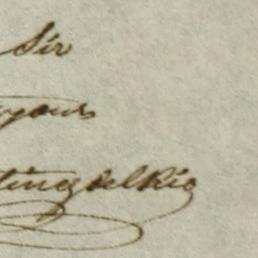 Sir
yours
tinez del Rio